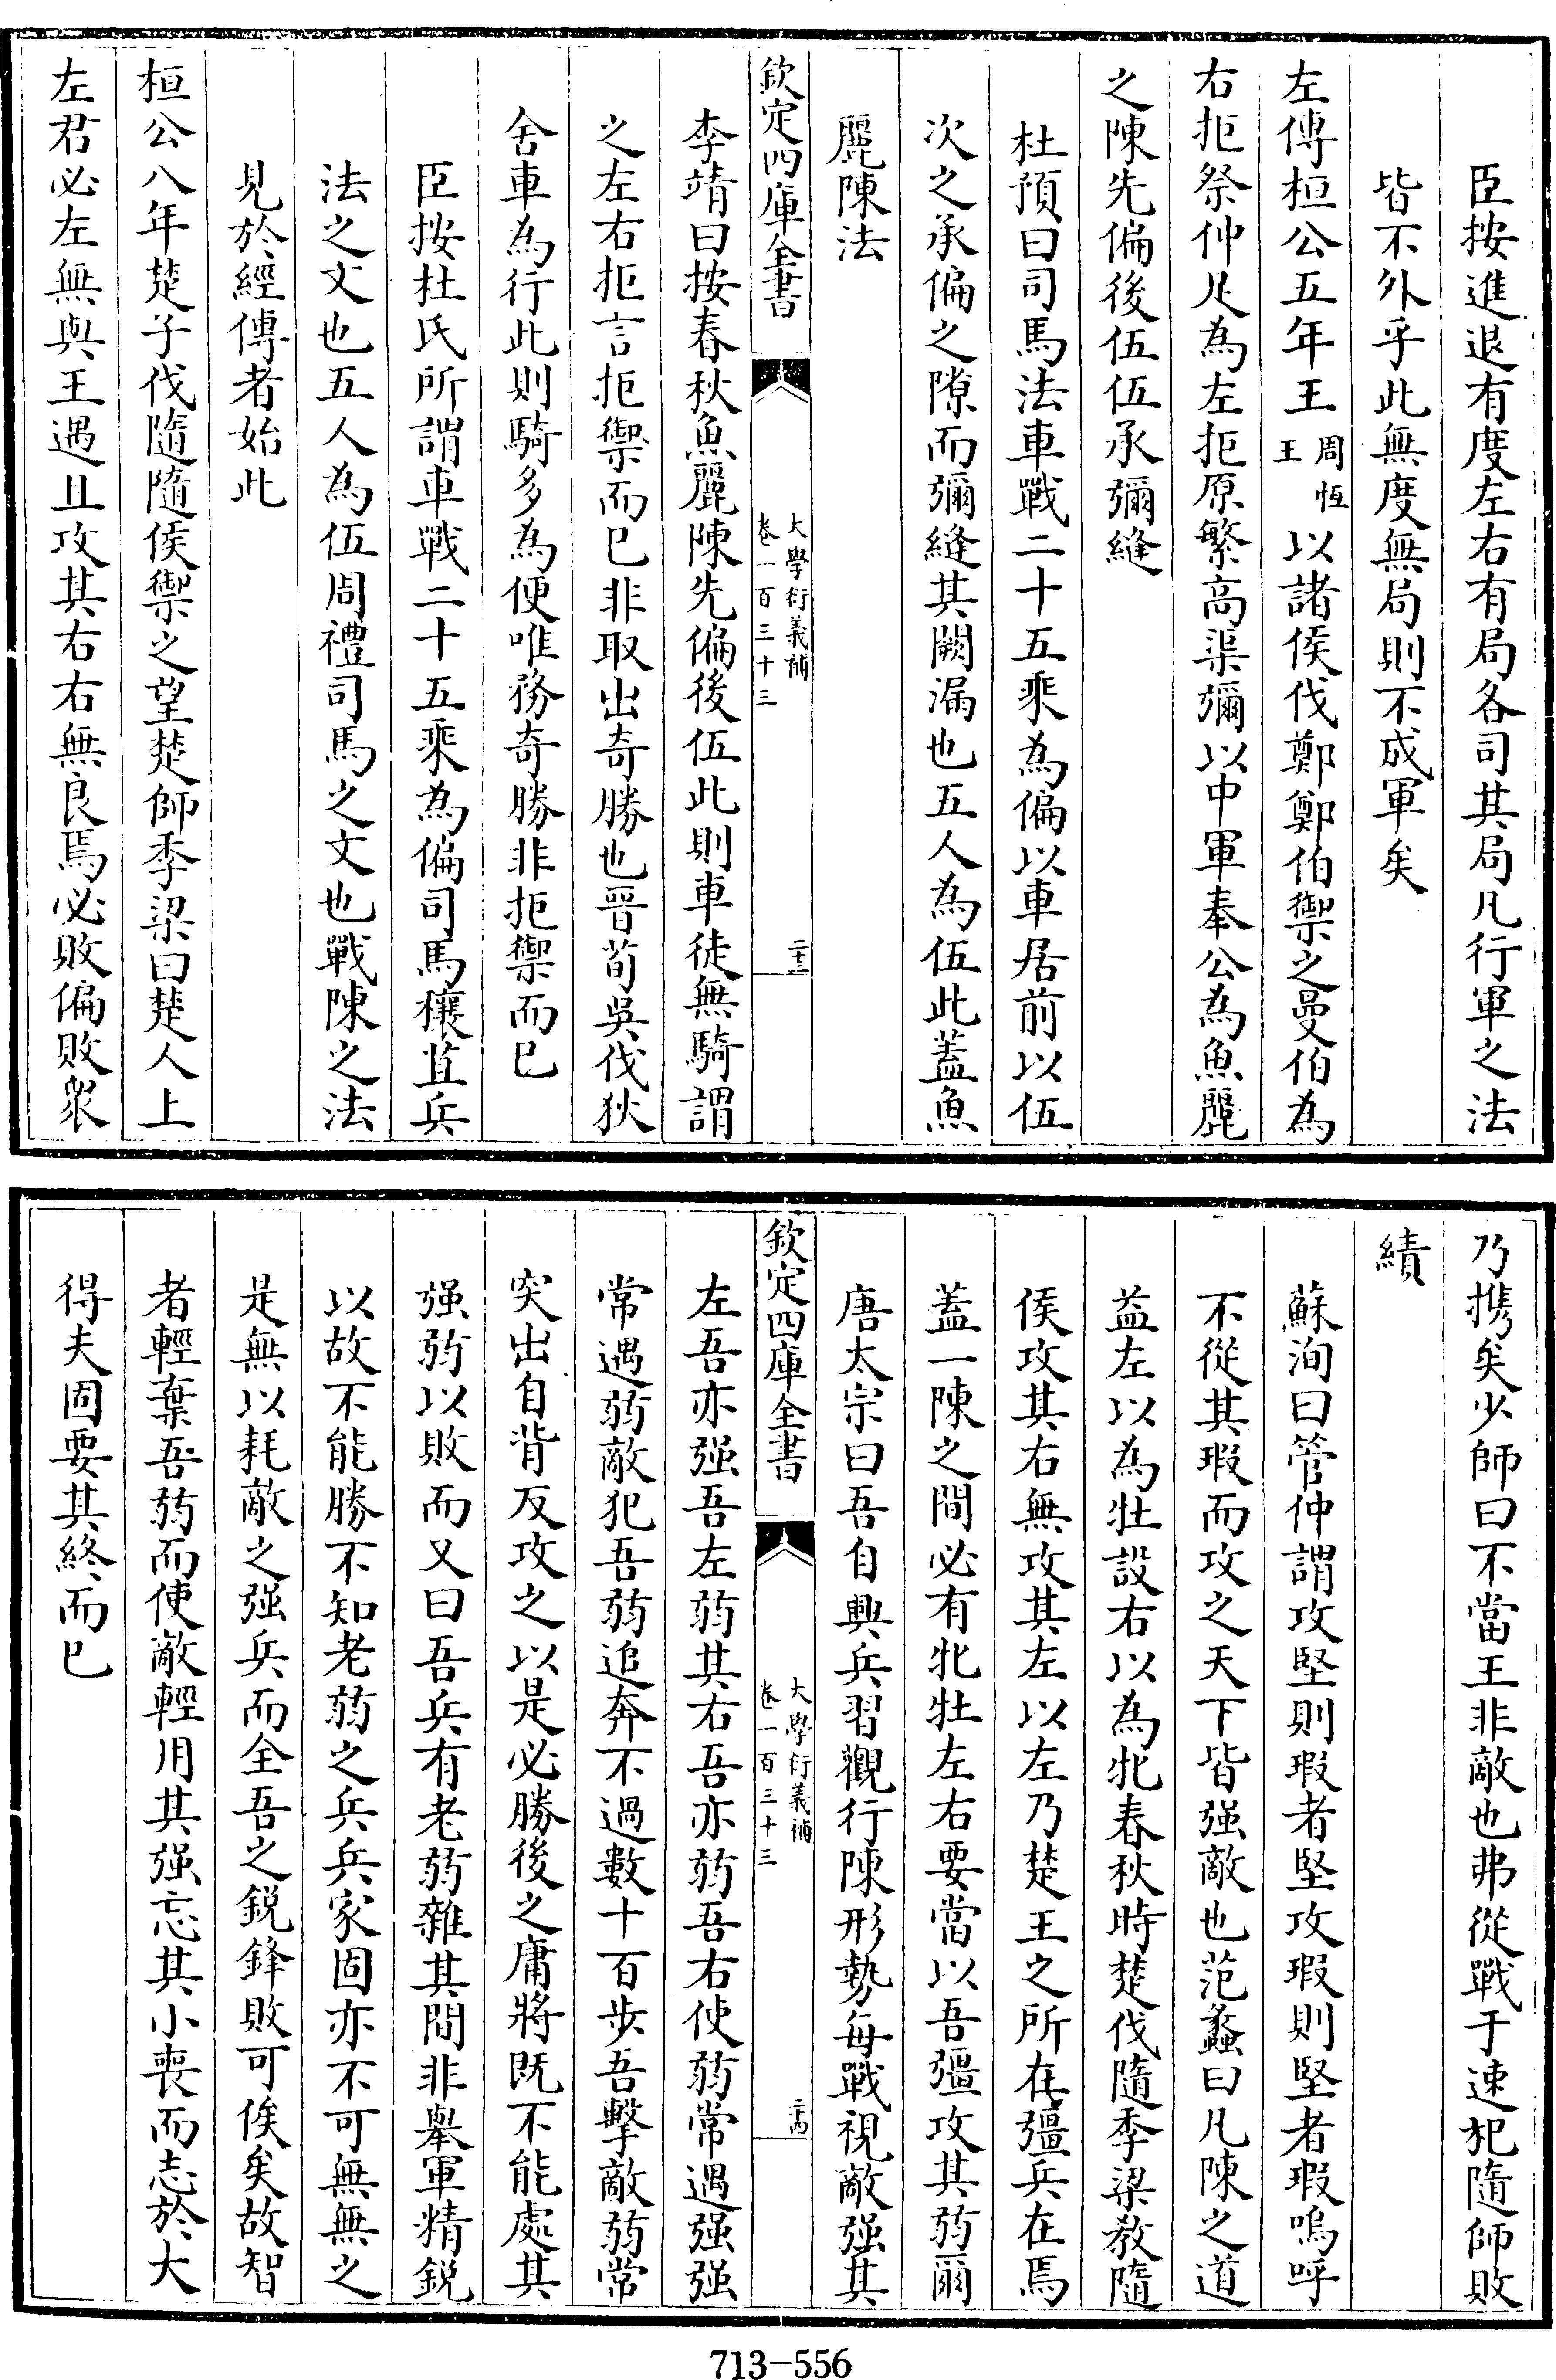 臣按進退有度左右有局各司其局凡行軍之法
皆不外乎此無度無局則不成軍矣
左傳桓公五年王周恆王以諸侯伐鄭鄭伯禦之曼伯為
右拒祭仲足為左拒原繁高渠彌以中軍奉公為魚麗
之陳先偏後伍伍承彌縫
杜預曰司馬法車戰二十五乘為偏以車居前以伍
次之承偏之隙而彌縫其闕漏也五人為伍此蓋魚
麗陳法
欽定四庫全書
大學衍義補
卷一百三十三
二十三
李靖曰按春秋魚麗陳先偏後伍此則車徒無騎謂
之左右拒言拒禦而已非取出奇勝也晉荀吳伐狄
舍車為行此則騎多為便唯務奇勝非拒禦而已
臣按杜氏所謂車戰二十五乘為偏司馬穰苴兵
法之文也五人為伍周禮司馬之文也戰陳之法
見於經傳者始此
桓公八年楚子伐隨隨侯禦之望楚師季梁曰楚人上
左君必左無與王遇且攻其右右無良焉必敗偏敗衆
乃攜矣少師曰不當王非敵也弗從戰于速杞隨師敗
績
蘇洵曰管仲謂攻堅則瑕者堅攻瑕則堅者瑕嗚呼
不從其瑕而攻之天下皆强敵也范蠡曰凡陳之道
益左以為牡設右以為牝春秋時楚伐隨季梁教隨
侯攻其右無攻其左以左乃楚王之所在彊兵在焉
蓋一陳之間必有牝牡左右要當以吾彊攻其弱爾
唐太宗曰吾自興兵習觀行陳形勢每戰視敵强其
欽定四庫全書
大學衍義補
卷一百三十三
二十四
左吾亦强吾左弱其右吾亦弱吾右使弱常遇强强
常遇弱敵犯吾弱追奔不過數十百步吾擊敵弱常
突出自背反攻之以是必勝後之庸將既不能處其
强弱以敗而又曰吾兵有老弱雜其間非舉軍精銳
以故不能勝不知老弱之兵兵家固亦不可無無之
是無以耗敵之强兵而全吾之銳鋒敗可俟矣故智
者輕棄吾弱而使敵輕用其强忘其小喪而志於大
得夫固要其終而已
713-556